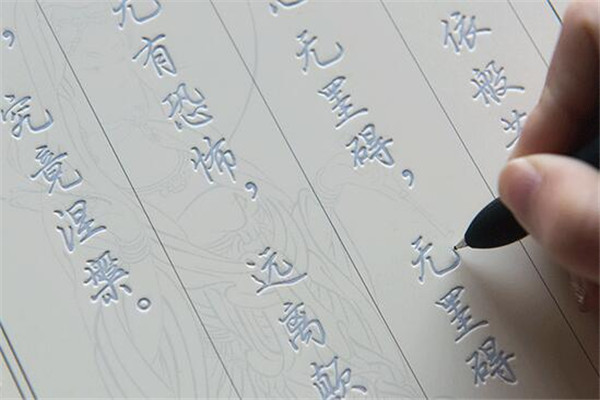 依般若
心无罣碍，无罣碍
无有恐怖，远离颠
，究竟涅槃。